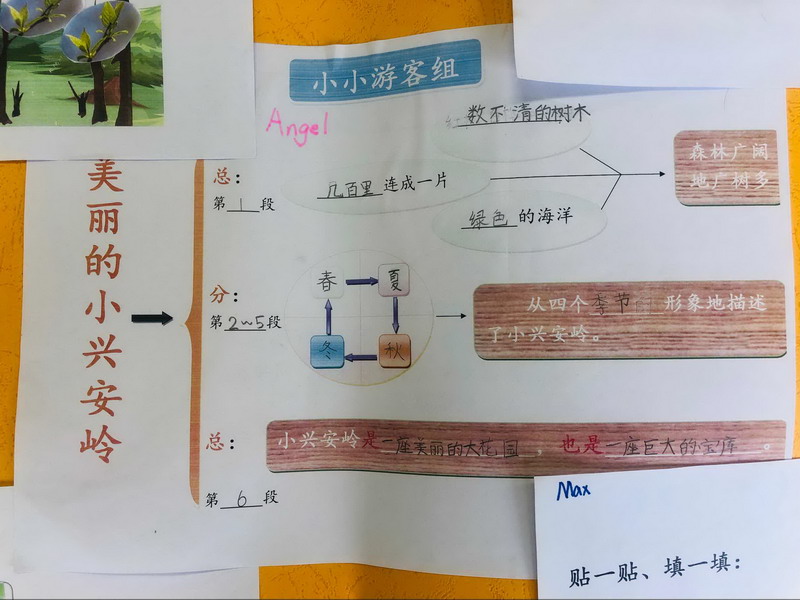 小小游客组
Angel
美丽的小兴安岭
总：
第1段
数不清的树木
几百里连成一片
绿色的海洋
森林广阔
地广树多
分：
第2~5段
春
夏
秋
冬
从四个季节 形象地描述
了小兴安岭。
总：
小兴安岭是一座美丽的大花园，也是一座巨大的宝库。
第6段
Max
贴一贴、填一填：